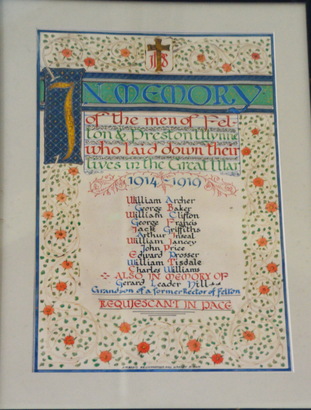 IHS
IN MEMORY
of the men of Fel-
ton & Preston Wynne
who laid down their
lives in the Great War
1914 1919
William Archer
George Baker
William Clifton
George Francis
Jack Griffiths
Arthur
William Jancey
John Price
Edward Prosser
William Tisdale
Charles Williams
ALSO IN MEMORY OF
Gerard Leader
Grandson of a former Rector of Felton
REQUIESCANT IN PACE